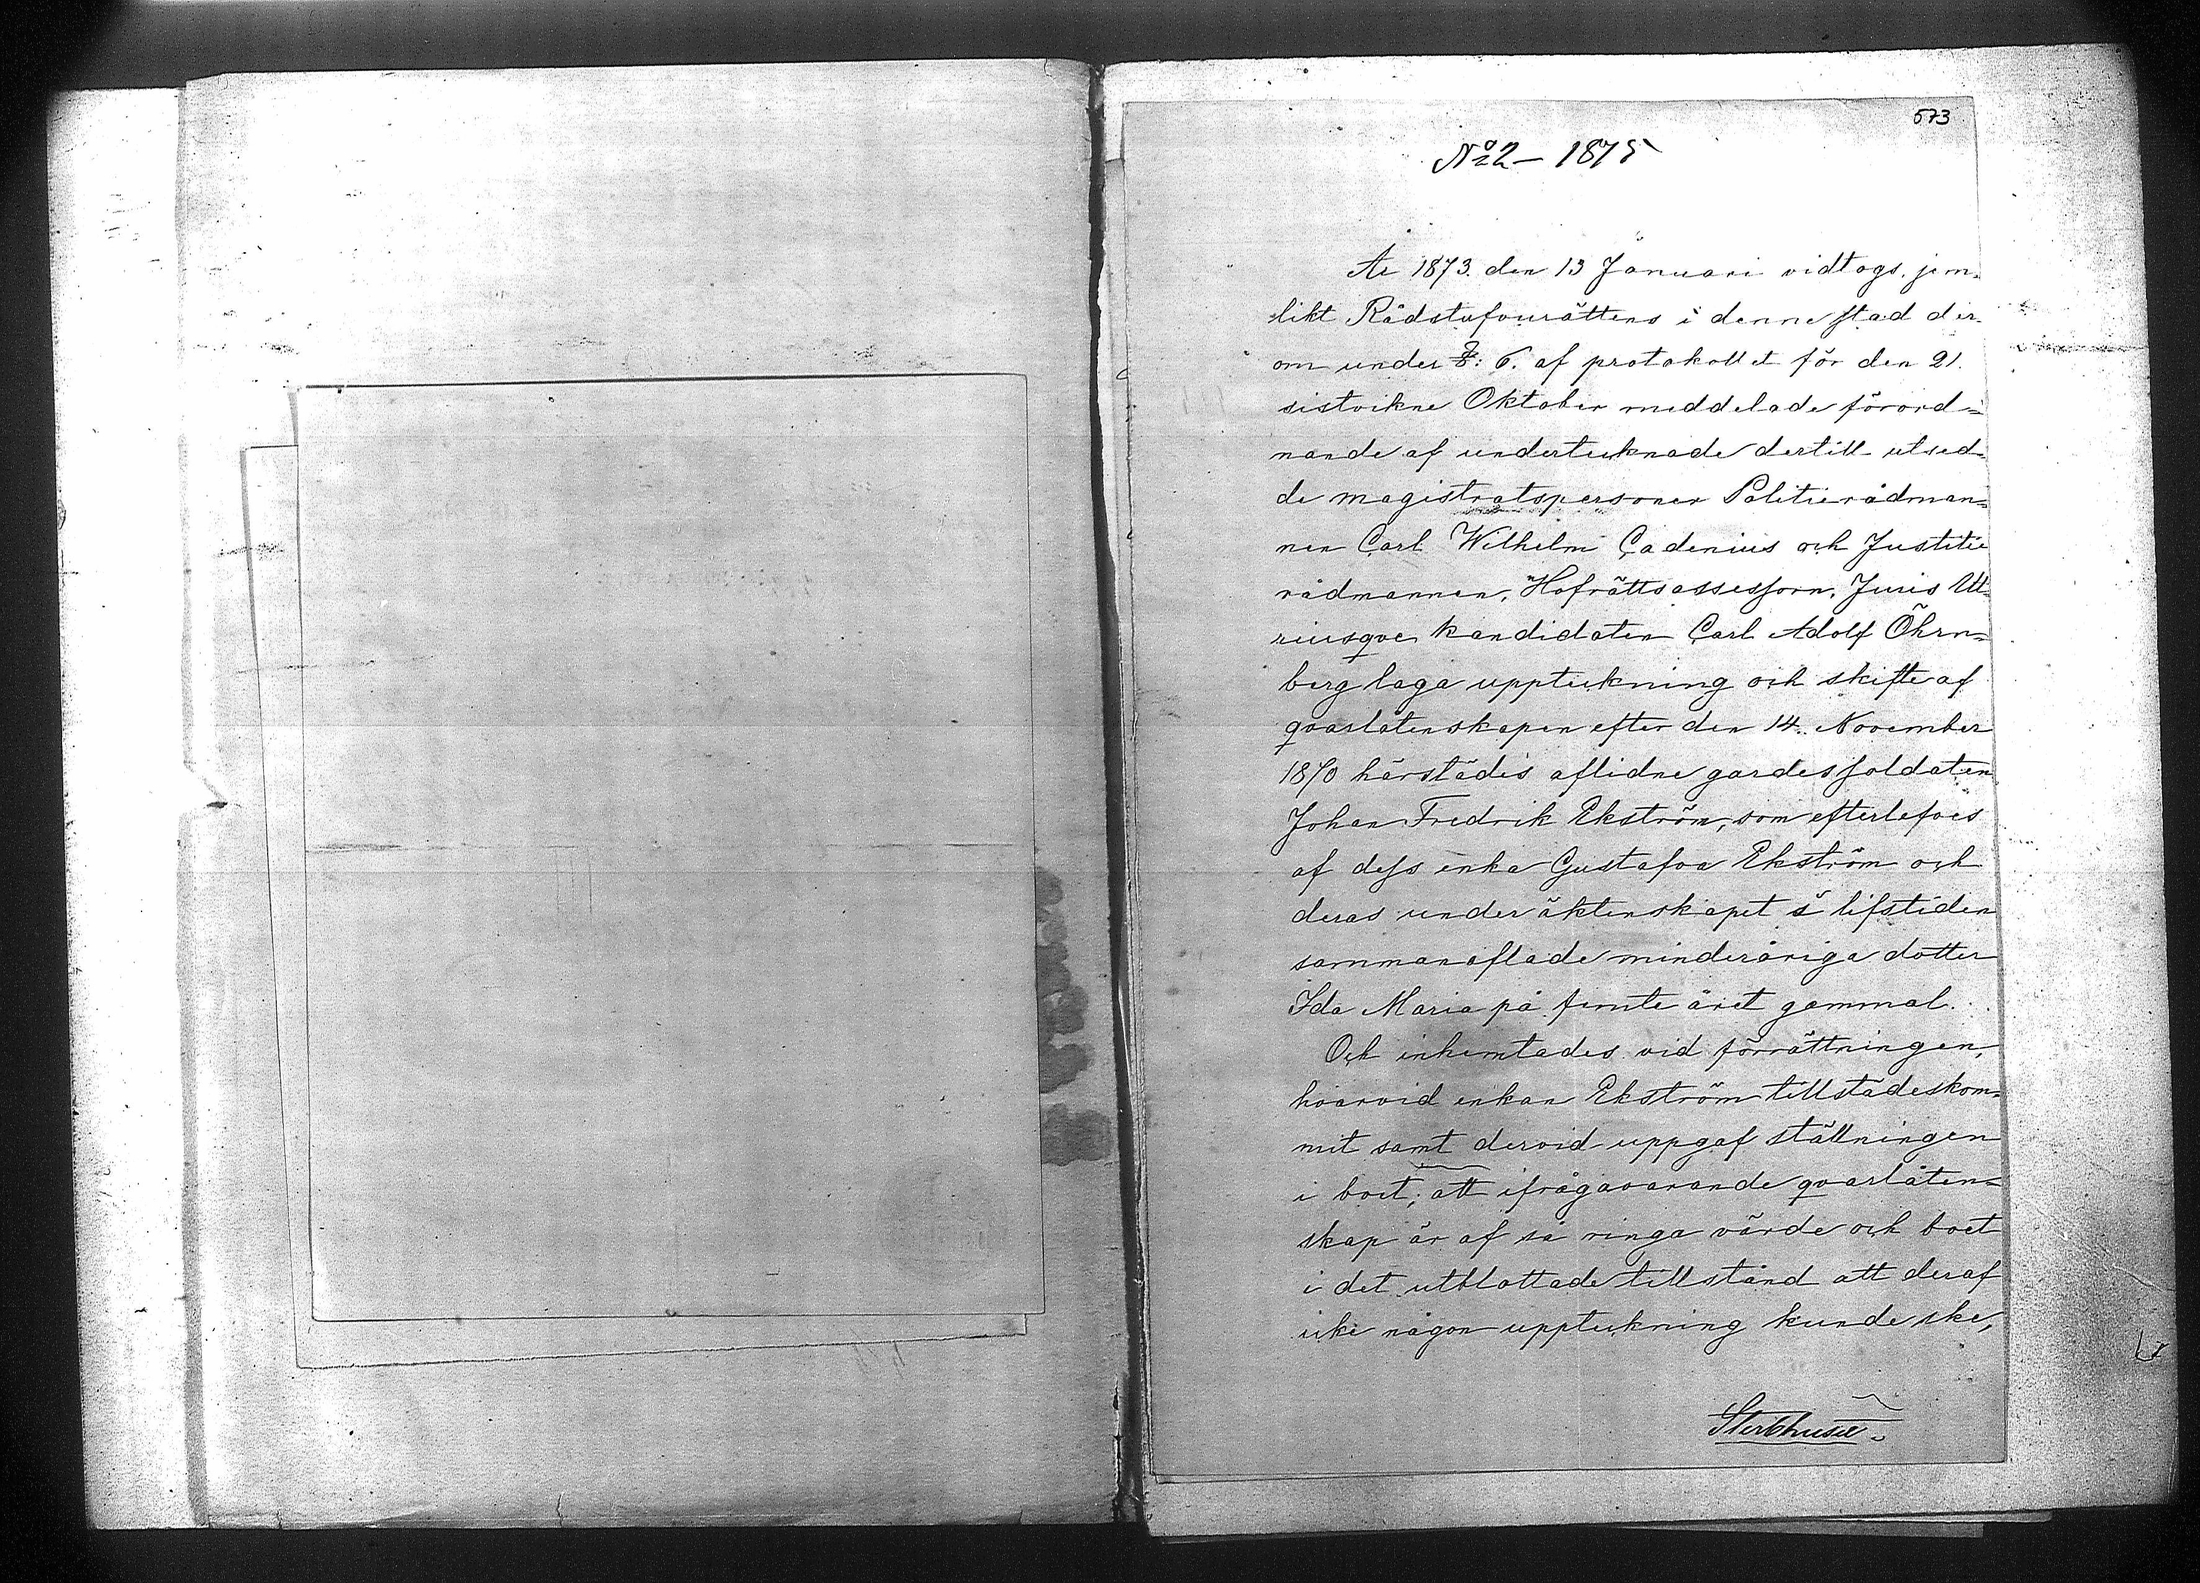 573
No 2 – 1875
År 1873 den 13 Januari vidtogs, jem-
likt Rådstufvurättens i denne stad der-
om under §: 6. af protokollet för den 21.
sistvikne Oktober meddelade förord-
nande af undertecknade dertill utsed-
de magistratspersoner Politierådman-
nen Carl Wilhelm Cadenius och Justitie
rådmannen, Hofrättsassessorn, Juris Ut-
riusque kandidaten Carl Adolf Öhrn-
berg laga uppteckning och skifte af
qvarlåtenskapen efter den 14. November
1870 härstädes aflidne gardessoldaten
Johan Fredrik Ekström, som efterlefves
af dess enka Gustafva Ekström och
deras under äktenskapet i lifstiden
sammanaflade minderåriga dotter
Ida Maria på femte året gammal.
Och inhemtades vid förrättningen,
hvarvid enkan Ekström tillstädeskom-
mit samt dervid uppgaf ställningen
i boet; att ifrågavarande qvarlåten-
skap är af så ringa värde och boet
i det utblottade tillstånd att deraf
icke någon uppteckning kunde ske,
Sterbhuset